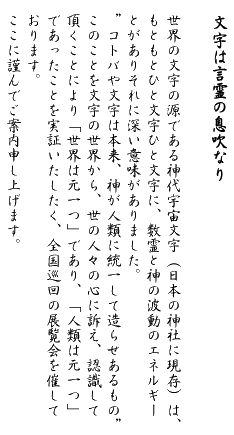 文字は言霊の息吹なり
世界の文字の源である神代宇宙文字（日本の神社に現存）は、
もともとひと文字ひと文字に、数霊と神の波動のエネルギー
とがありそれに深い意味がありました。
”コトバや文字は本来、神が人類に統一して造らせあるもの”
このことを文字の世界から、世の人々の心に訴え、認識して
頂くことにより「世界は元一つ」であり、「人類は元一つ」
であったことを実証いたしたく、全国巡回の展覧会を催して
おります。
ここに謹んでご案内申し上げます。